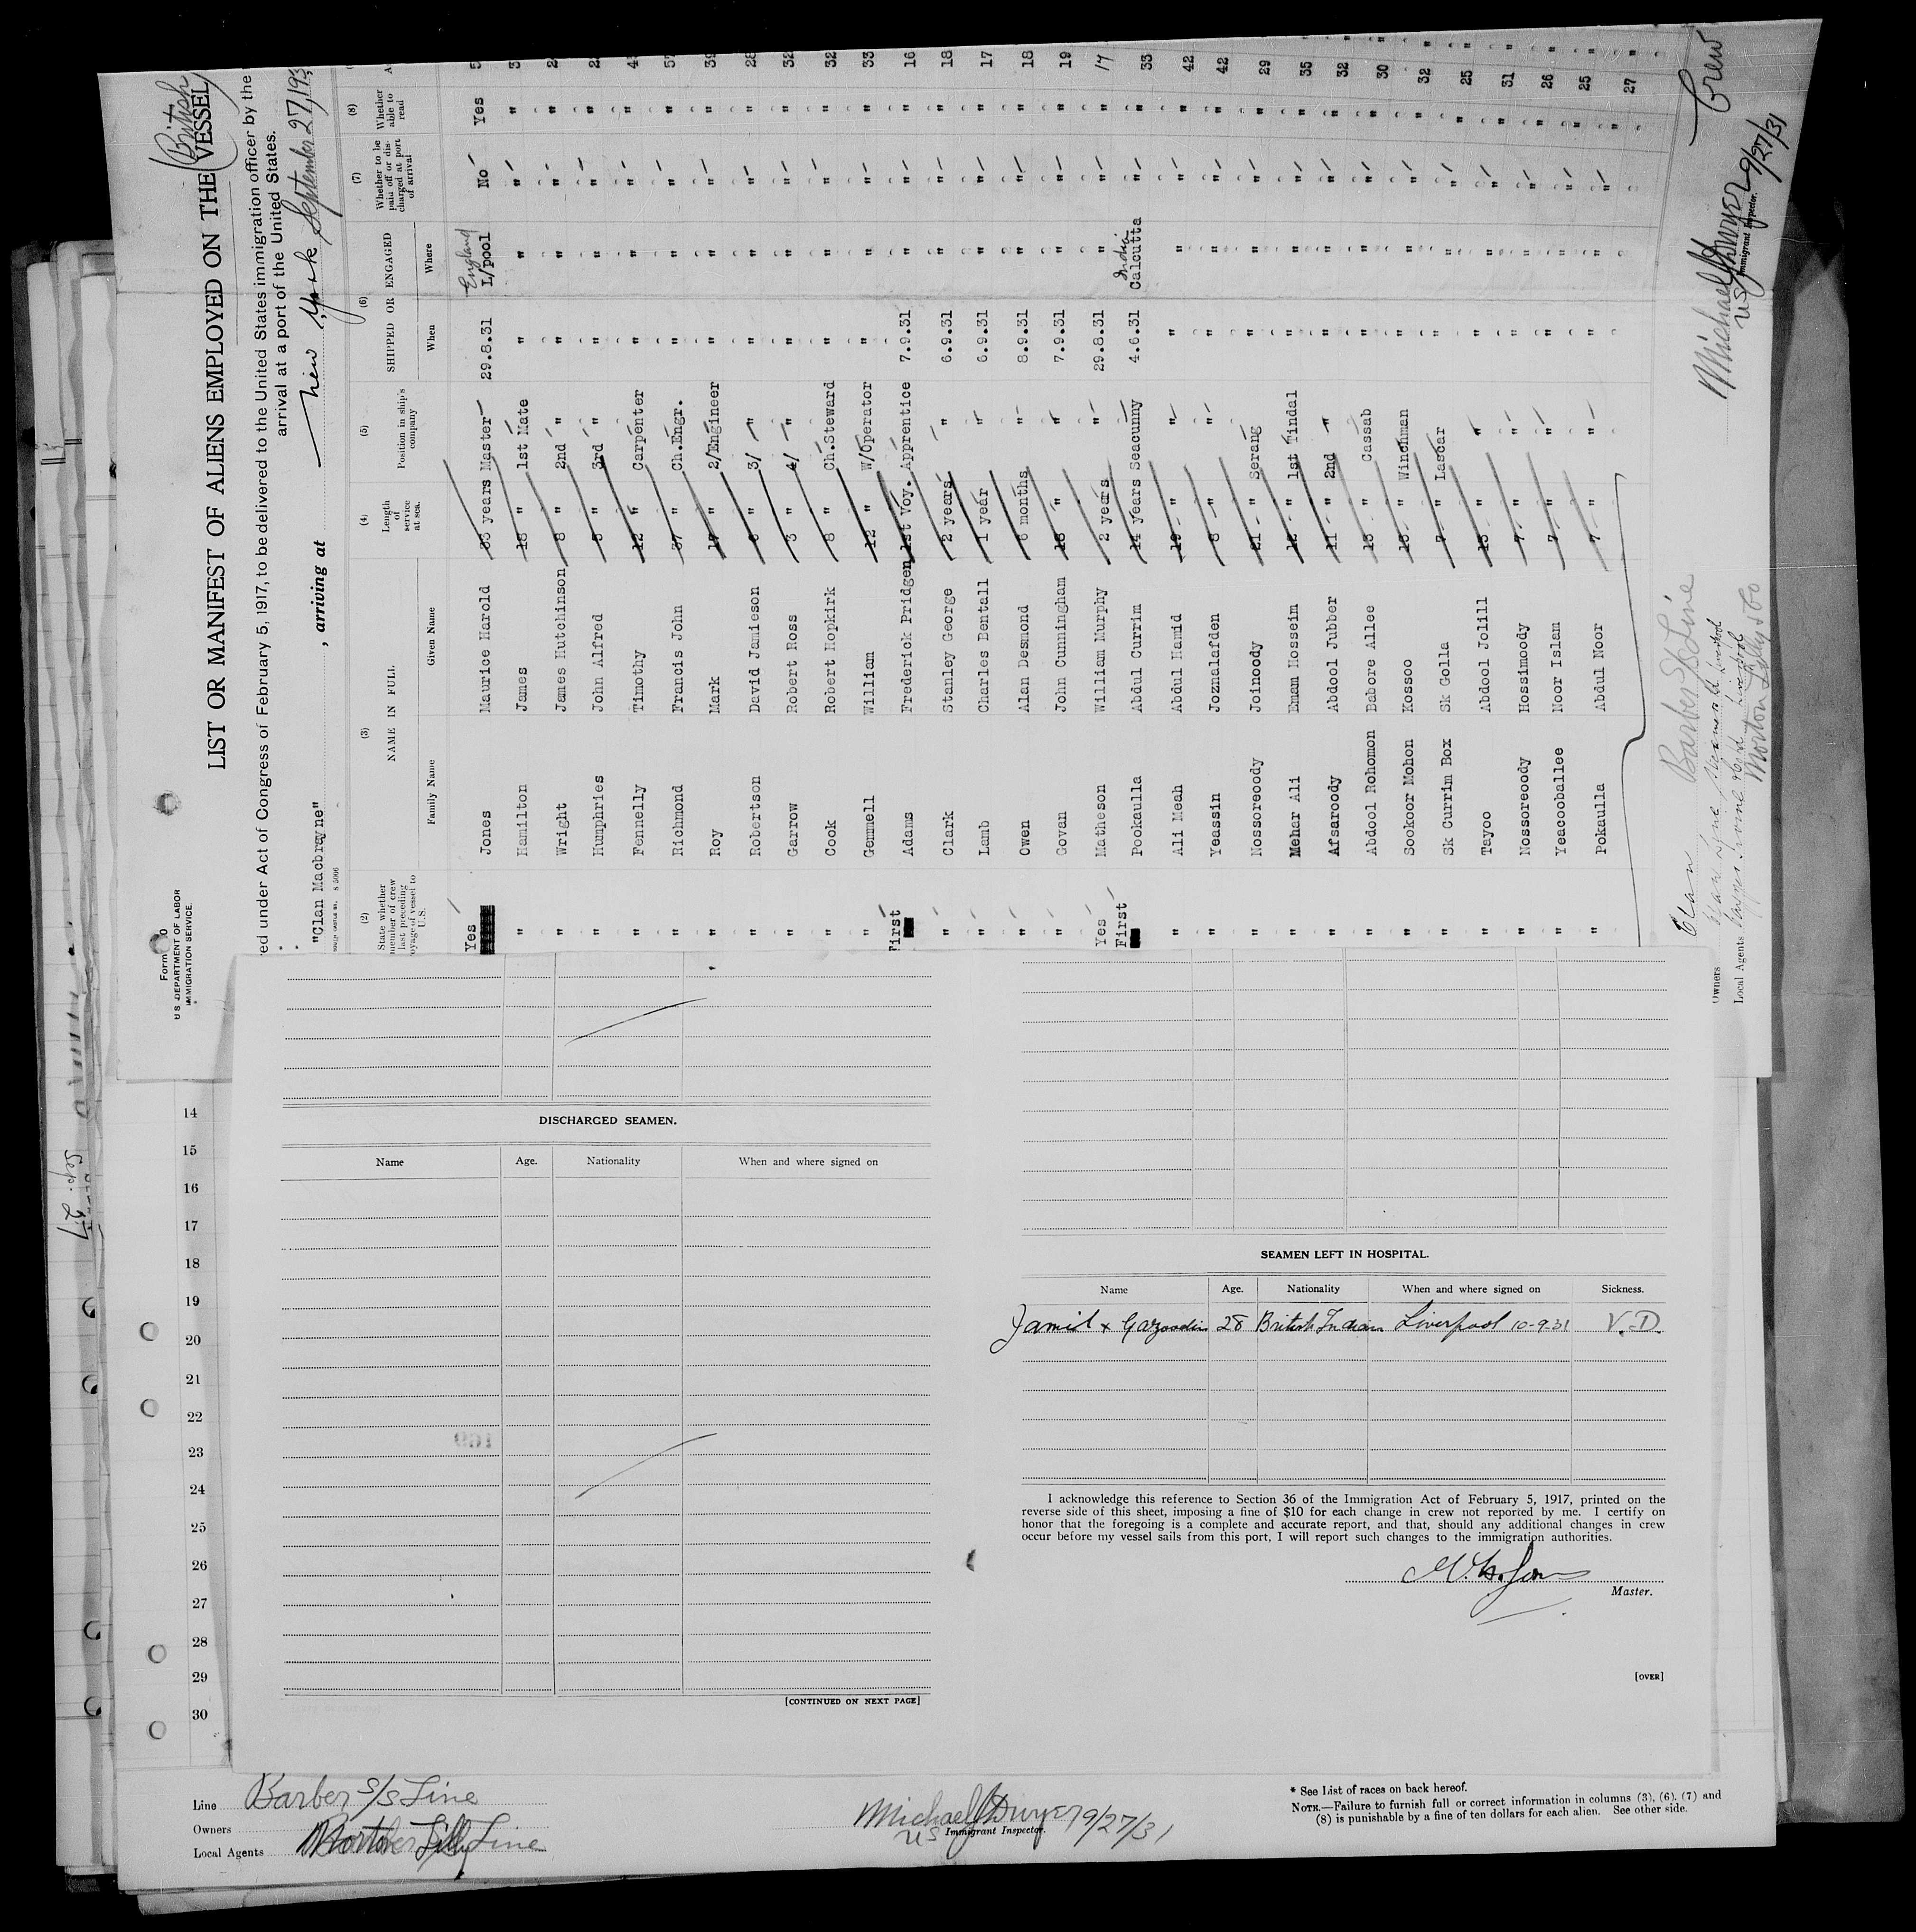 Form
U.S. DEPARTMENT OF LABOR
IMMIGRATION SERVICE.
LIST OR MANIFEST OF ALIENS EMPLOYED ON THE VESSEL
(British
red under Act of Congress of February 5, 1917, to be delivered to the United States immigration officer by the
arrival at a port of the United States.
"Clan Macbrayne" , arriving at New York September 27, 193
(2) (3) (4) (5) (6) (7) (8)
State whether member of crew last preceding voyage of vessel to U.S.
NAME IN FULL
Family Name Given Name
Length of service at sea.
Position in ship's company
SHIPPED OR ENGAGED
When Where
Whether to be paid off or discharged at port of arrival
Whether able to read
Yes Jones Maurice Harold 33 years Master 29.8.31 England L/pool No Yes
" Hamilton James 18 " 1st Mate " " " "
" Wright James Hutchinson 8 " 2nd " " " " "
" Humphries John Alfred 5 " 3rd " " " " "
" Fennelly Timothy 12 " Carpenter " " " "
" Richmond Francis John 37 " Ch.Engr. " " " "
" Roy Mark " 2/Engineer " " " " 39
" Robertson David Jamieson " 3/ " " " " " 28
" Garrow Robert Ross 3 " 4/ " " " " " 32
" Cook Robert Hopkirk 8 " Ch.Steward " " " " 32
" Gemmell William 12 " W/Operator " " " " 33
First Adams Frederick Pridgen 1st Voy. Apprentice 7.9.31 " " " 16
" Clark Stanley George 2 years " 6.9.31 " " " 18
" Lamb Charles Dentall 1 year " 6.9.31 " " " 17
" Owen Alan Desmond 6 months " 8.9.31 " " " 18
" Govan John Cunningham 18 " " 7.9.31 " " " 19
Yes Matheson William Murphy 2 years " 29.8.31 " " " 17
First Pookaulla Abdul Currim 14 years Seacunny 4.6.31 India Calcutta " " 33
" Ali Meah Abdul Hamid 19 " " " " " " 42
" Yeassin Joznalafden " " " " " " 42
" Nossoreoody Joinoody 21 " Serang " " " " 29
" Mehar Ali Emam Hossein 12 " 1st Tindal " " " " 35
" Afsaroody Abdool Jubber 11 " 2nd " " " " " 32
" Abdool Rohomon Babore Allee 13 " Cassab " " " " 30
" Sookoor Mohon Kossoo " Winchman " " " " 32
" Sk Currim Box Sk Golla 7 " Lascar " " " " 25
" Tayoo Abdool Jolill 13 " " " " " " 31
" Nossoreoody Hossimoody 7 " " " " " " 26
" Yeacooballee Noor Islam 7 " " " " " " 25
" Pokaulla Abdul Noor 7 " " " " " " 27
Clan Barber SS Line
Owners
Local Agents
Morton Lilly & Co
Michael J Dwyer 9/27/31
US Immigrant Inspector.
Crew
Sep. 27
14
15
16
17
18
19
20
21
22
23
24
25
26
27
28
29
30
DISCHARGED SEAMEN.
Name Age. Nationality When and where signed on
[CONTINUED ON NEXT PAGE]
SEAMEN LEFT IN HOSPITAL.
Name Age. Nationality When and where signed on Sickness.
Jamid x Gazoodin 28 British Indian Liverpool 10-9-31 V.D.
I acknowledge this reference to Section 36 of the Immigration Act of February 5, 1917, printed on the
reverse side of this sheet, imposing a fine of $10 for each change in crew not reported by me. I certify on
honor that the foregoing is a complete and accurate report, and that, should any additional changes in crew
occur before my vessel sails from this port, I will report such changes to the immigration authorities.
M. H. Jones
Master.
[OVER]
Line Barber S/S Line
Owners
Local Agents
Michael J Dwyer 9/27/31
US Immigrant Inspector.
* See List of races on back hereof.
NOTE.—Failure to furnish full or correct information in columns (3), (6), (7) and
(8) is punishable by a fine of ten dollars for each alien. See other side.